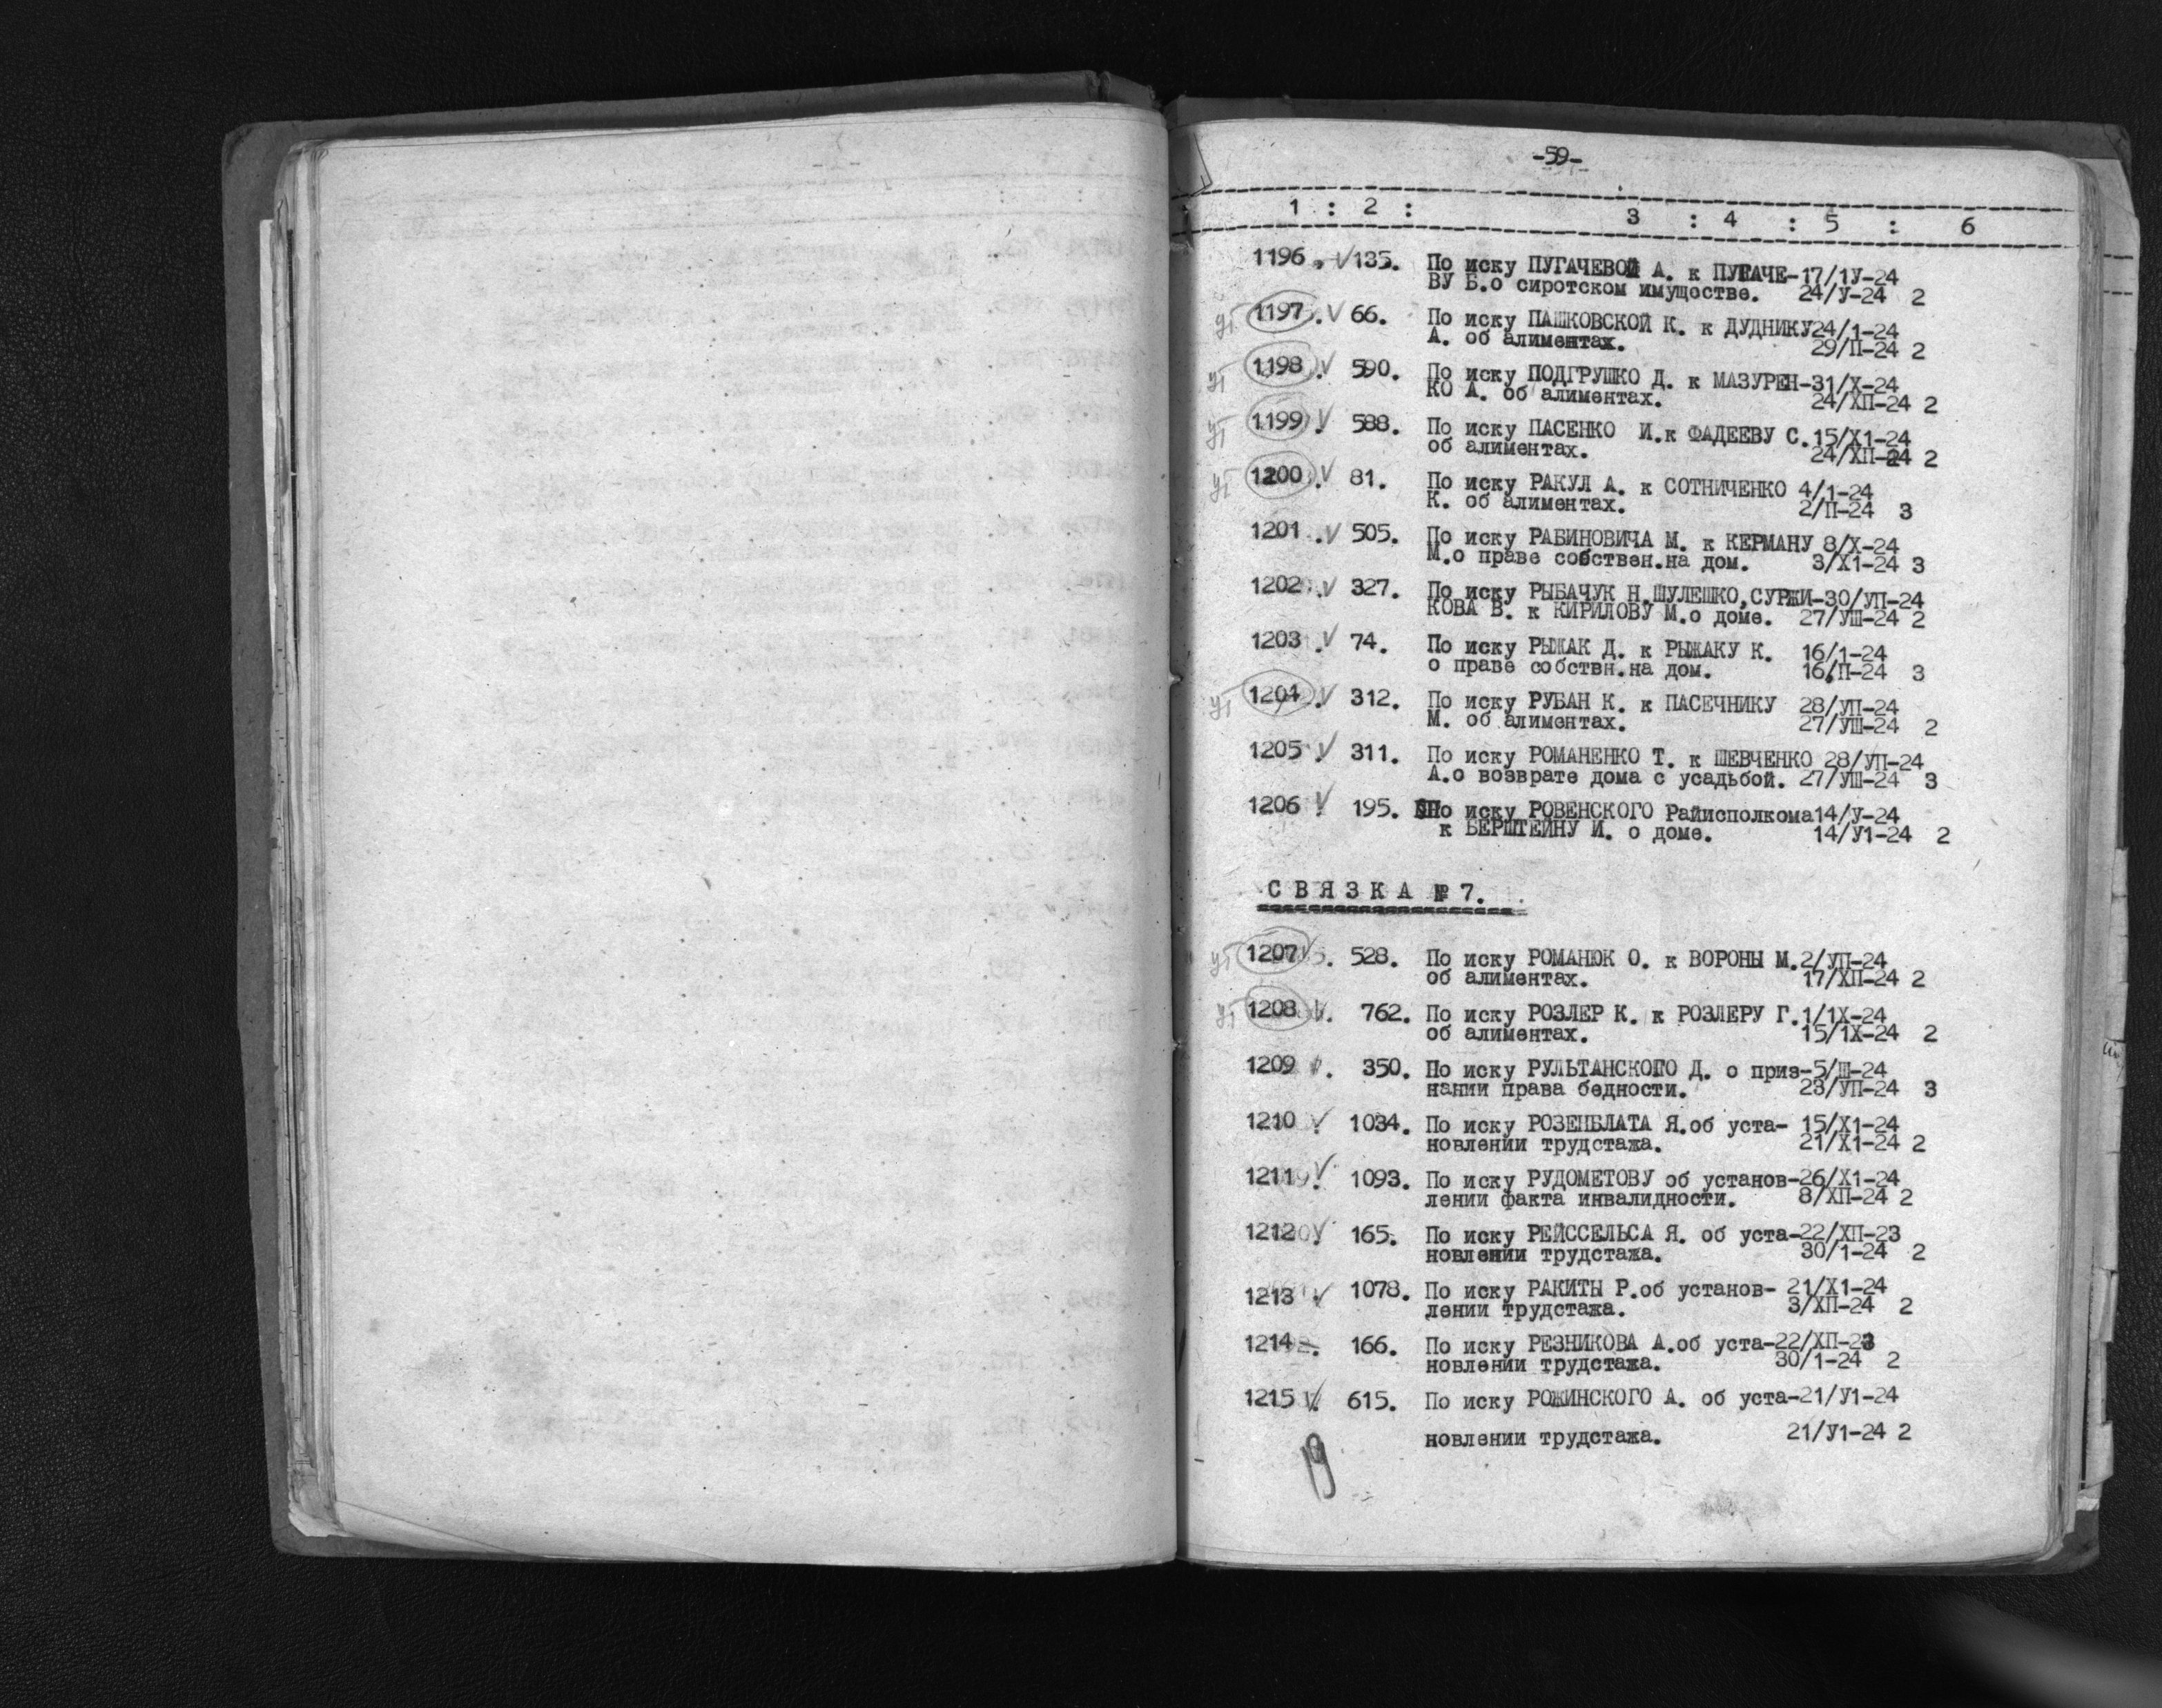 -59-
1 : 2 : 3 : 4 : 5 : 6
1196. √ 135. По иску ПУГАЧЕВОЙ А. к ПУГАЧЕ-17/1У-24
ВУ Б.о сиротском имуществе. 24/У-24 2
ут 1197. √ 66. По иску ПАШКОВСКОЙ К. к ДУДНИКУ24/1-24
А. об алиментах. 29/П-24 2
ут 1198. √ 590. По иску ПОДГРУШКО Д. к МАЗУРЕН-31/Х-24
КО А. об алиментах. 24/ХП-24 2
ут 1199. √ 588. По иску ПАСЕНКО И.к ФАДЕЕВУ С.15/Х1-24
об алиментах. 24/ХП-24 2
ут 1200. √ 81. По иску РАКУЛ А. к СОТНИЧЕНКО 4/1-24
К. об алиментах. 2/П-24 3
1201. √ 505. По иску РАБИНОВИЧА М. к КЕРМАНУ 8/Х-24
М.о праве собствен.на дом. 3/Х1-24 3
1202. √ 327. По иску РЫБАЧУК Н.ШУЛЕШКО,СУРЖИ-30/УП-24
КОВА В. к КИРИЛОВУ М.о доме. 27/УШ-24 2
1203. √ 74. По иску РЫЖАК Д. к РЫЖАКУ К. 16/1-24
о праве собствн.на дом. 16/П-24 3
ут 1204. √ 312. По иску РУБАН К. к ПАСЕЧНИКУ 28/УП-24
М. об алиментах. 27/УШ-24 2
1205. √ 311. По иску РОМАНЕНКО Т. к ШЕВЧЕНКО 28/УП-24
А.о возврате дома с усадьбой. 27/УШ-24 3
1206. √ 195. По иску РОВЕНСКОГО Райисполкома14/У-24
к БЕРШТЕЙНУ И. о доме. 14/У1-24 2
СВЯЗКА № 7.
ут 1207. √ 528. По иску РОМАНЮК О. к ВОРОНЫ М.2/УП-24
об алиментах. 17/ХП-24 2
ут 1208. √ 762. По иску РОЗЛЕР К. к РОЗЛЕРУ Г.1/1Х-24
об алиментах. 15/1Х-24 2
1209. 350. По иску РУЛЬТАНСКОГО Д. о приз-5/Ш-24
нании права бедности. 23/УП-24 3
1210. √ 1034. По иску РОЗЕНБЛАТА Я.об уста- 15/Х1-24
новлении трудстажа. 21/Х1-24 2
1211. √ 1093. По иску РУДОМЕТОВУ об установ-26/Х1-24
лении факта инвалидности. 8/ХП-24 2
1212. √ 165. По иску РЕЙССЕЛЬСА Я. об уста-22/ХП-23
новлении трудстажа. 30/1-24 2
1213. √ 1078. По иску РАКИТЫ Р.об установ- 21/Х1-24
лении трудстажа. 3/ХП-24 2
1214. 166. По иску РЕЗНИКОВА А.об уста-22/ХП-23
новлении трудстажа. 30/1-24 2
1215. √ 615. По иску РОЖИНСКОГО А. об уста-21/У1-24
новлении трудстажа. 21/У1-24 2
19